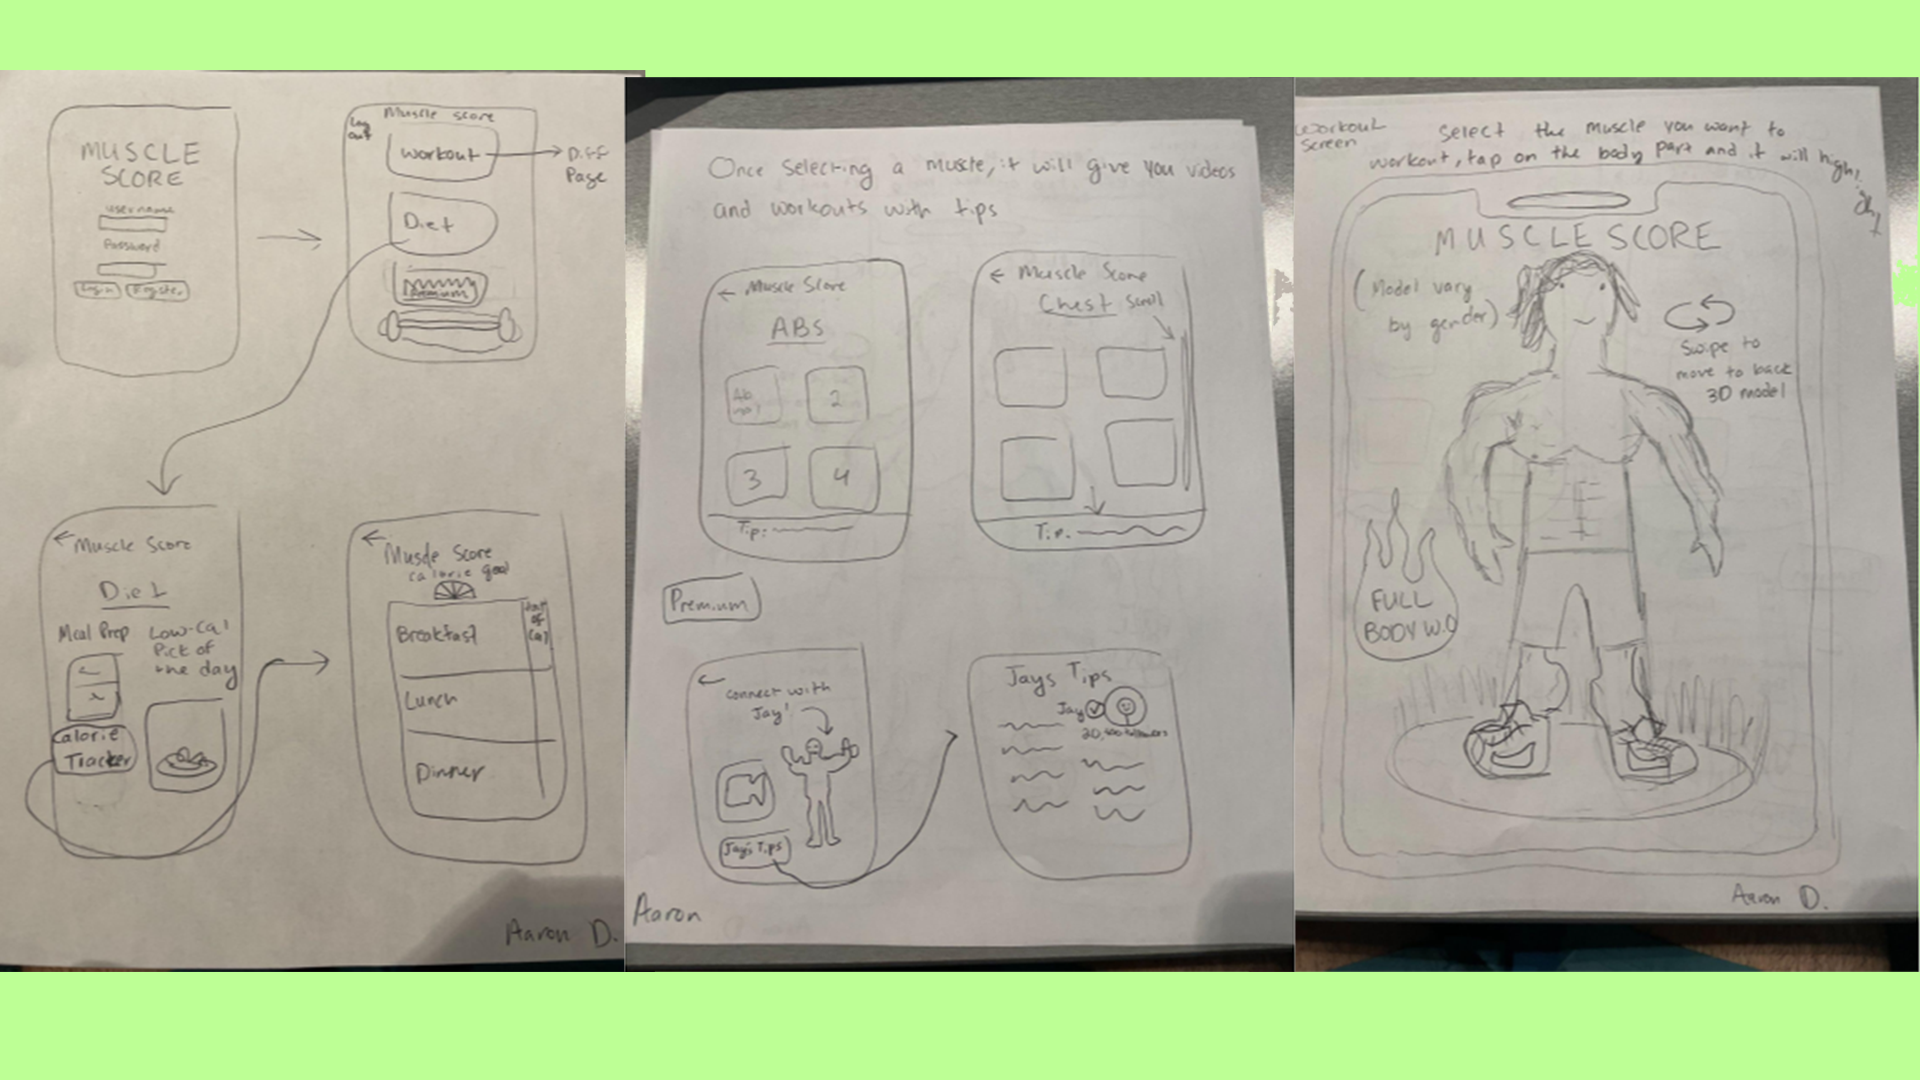 MUSCLE
SCORE
username
Password
Login
Register
Log
out
Muscle score
Workout
Diff
Page
Diet
Premium
← Muscle Score
Diet
Meal Prep
Low-Cal
Pick of
the day
Calorie
Tracker
← Muscle Score
calorie goal
Breakfast
of
Cal
Lunch
Dinner
Aaron D.
Once selecting a muscle, it will give you videos
and workouts with tips
← Muscle Score
ABS
Ab
2
3
4
Tip:
← Muscle Score
Chest
Scroll
Tip.
Premium
←
connect with
Jay!
Jay's Tips
Jays Tips
Jay
followers
Aaron
Workout
Screen
Select the muscle you want to
workout, tap on the body part and it will highlight
MUSCLE SCORE
(Model vary
by gender)
Swipe to
move to back
3D model
FULL
BODY W.O
Aaron D.